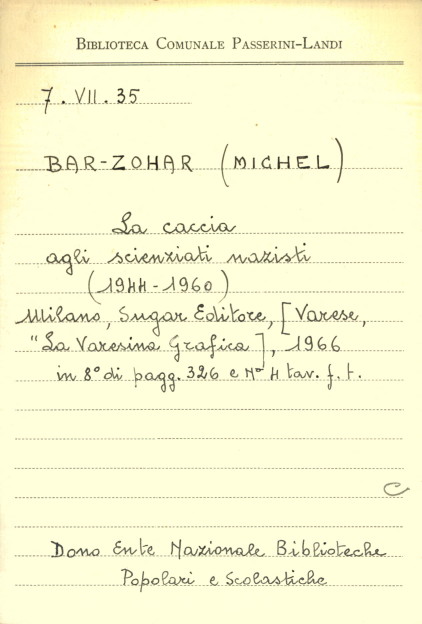 BIBLIOTECA COMUNALE PASSERINI-LANDI
7. VII. 35
BAR-ZOHAR (MICHEL)
La caccia
agli scienziati nazisti
(1944-1960)
Milano, Sugar Editore, [Varese,
"La Varesina Grafica], 1966
in 8° di pagg. 326 e N° 4 tav. f. t.
C
Dono Ente Nazionale Biblioteche
Popolari e Scolastiche